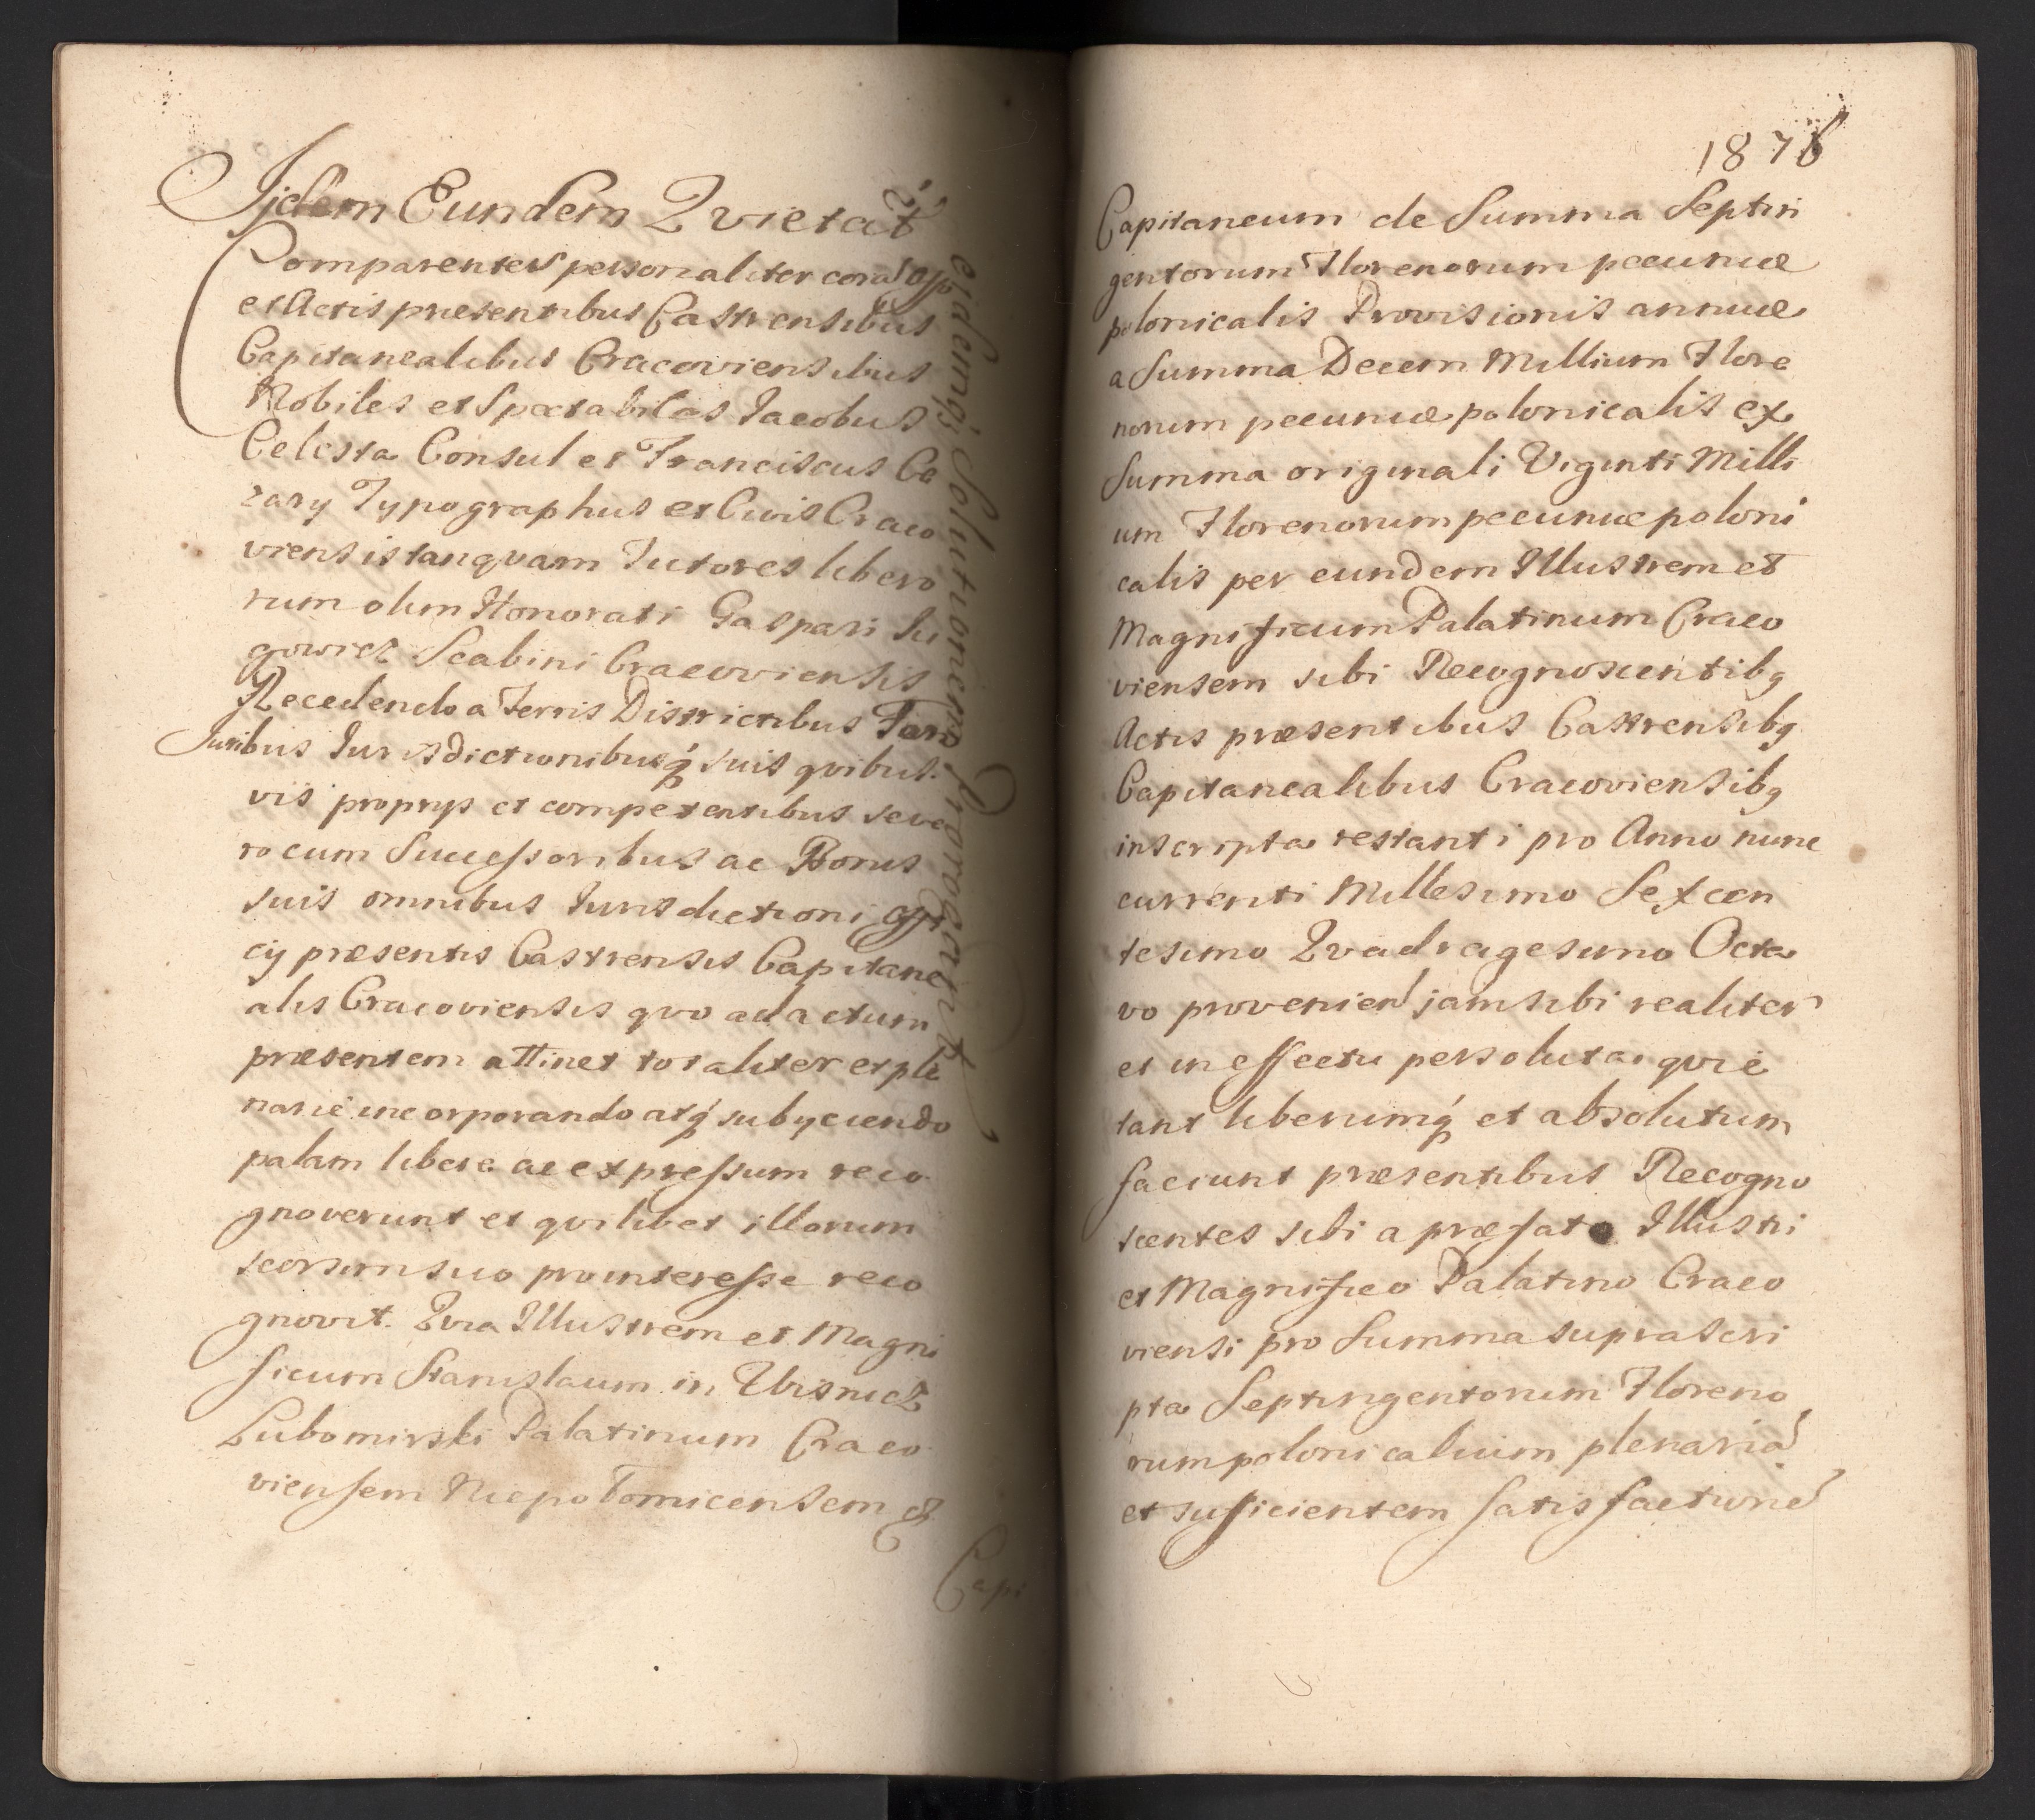 Ijdem Eundem Qvietāt
Comparentes personaliter corā Offo
et Actis præsentibus Castrensibus
Capitanealibus Cracoviensibus
Nobiles et Spectabiles Iacobus
Celesta Consul et Franciscus Ce
zary Typographus et Civis Craco
viensis tanqvam Tutores libero
rum olim Honorati Gaspari Iu
gowicz Scabini Cracoviensis
Recedendo a Terris Districtibus Foro
Iuribus Iurisdictionibusq́ suis qvibus
vis proprys et competentibus seve
ro cum Successoribus ac Bonis
suis omnibus Iurisdictioni Offi
cij præsentis Castrensis Capitane
alis Cracoviensis qvo ad actum
præsentem attinet totaliter et ple
nariè incorporando atq́ subyciendo
palam libere ac expressum reco
gnoverunt et qvilibet illorum
seorsim suo pro interesse reco
gnovit. Qvia Illustrem et Magni
ficum Stanislaum in Wisnicz
Lubomirski Palatinum Craco
viensem Niepołomicensem &
Capi
eidemq́ Solutionem proveniāt
1876
Capitaneum de Summa Septin
gentorum Florenorum pecuniæ
polonicalis Provisionis annuæ
a Summa Decem Millium Flore
norum pecuniæ polonicalis ex
Summa originali Viginti Milli
um Florenorum pecuniæ poloni
calis per eundem Illustrem et
Magnificum Palatinum Craco
viensem sibi Recognoscentibq
Actis præsentibus Castrensibq
Capitanealibus Cracoviensibq
inscripta restanti pro Anno nunc
currenti Millesimo Sexcen
tesimo Qvadragesimo Octa
vo provenien̄ jam sibi realiter
et in effectu persoluta qvie
tant liberumq́ et absolutum
faciunt præsentibus Recogno
scentes sibi a præfato Illustri
et Magnifico Palatino Craco
viensi pro Summa suprascri
pta Septingentorum Floreno
rum polonicalium plenariā
et sufficientem satisfactionē